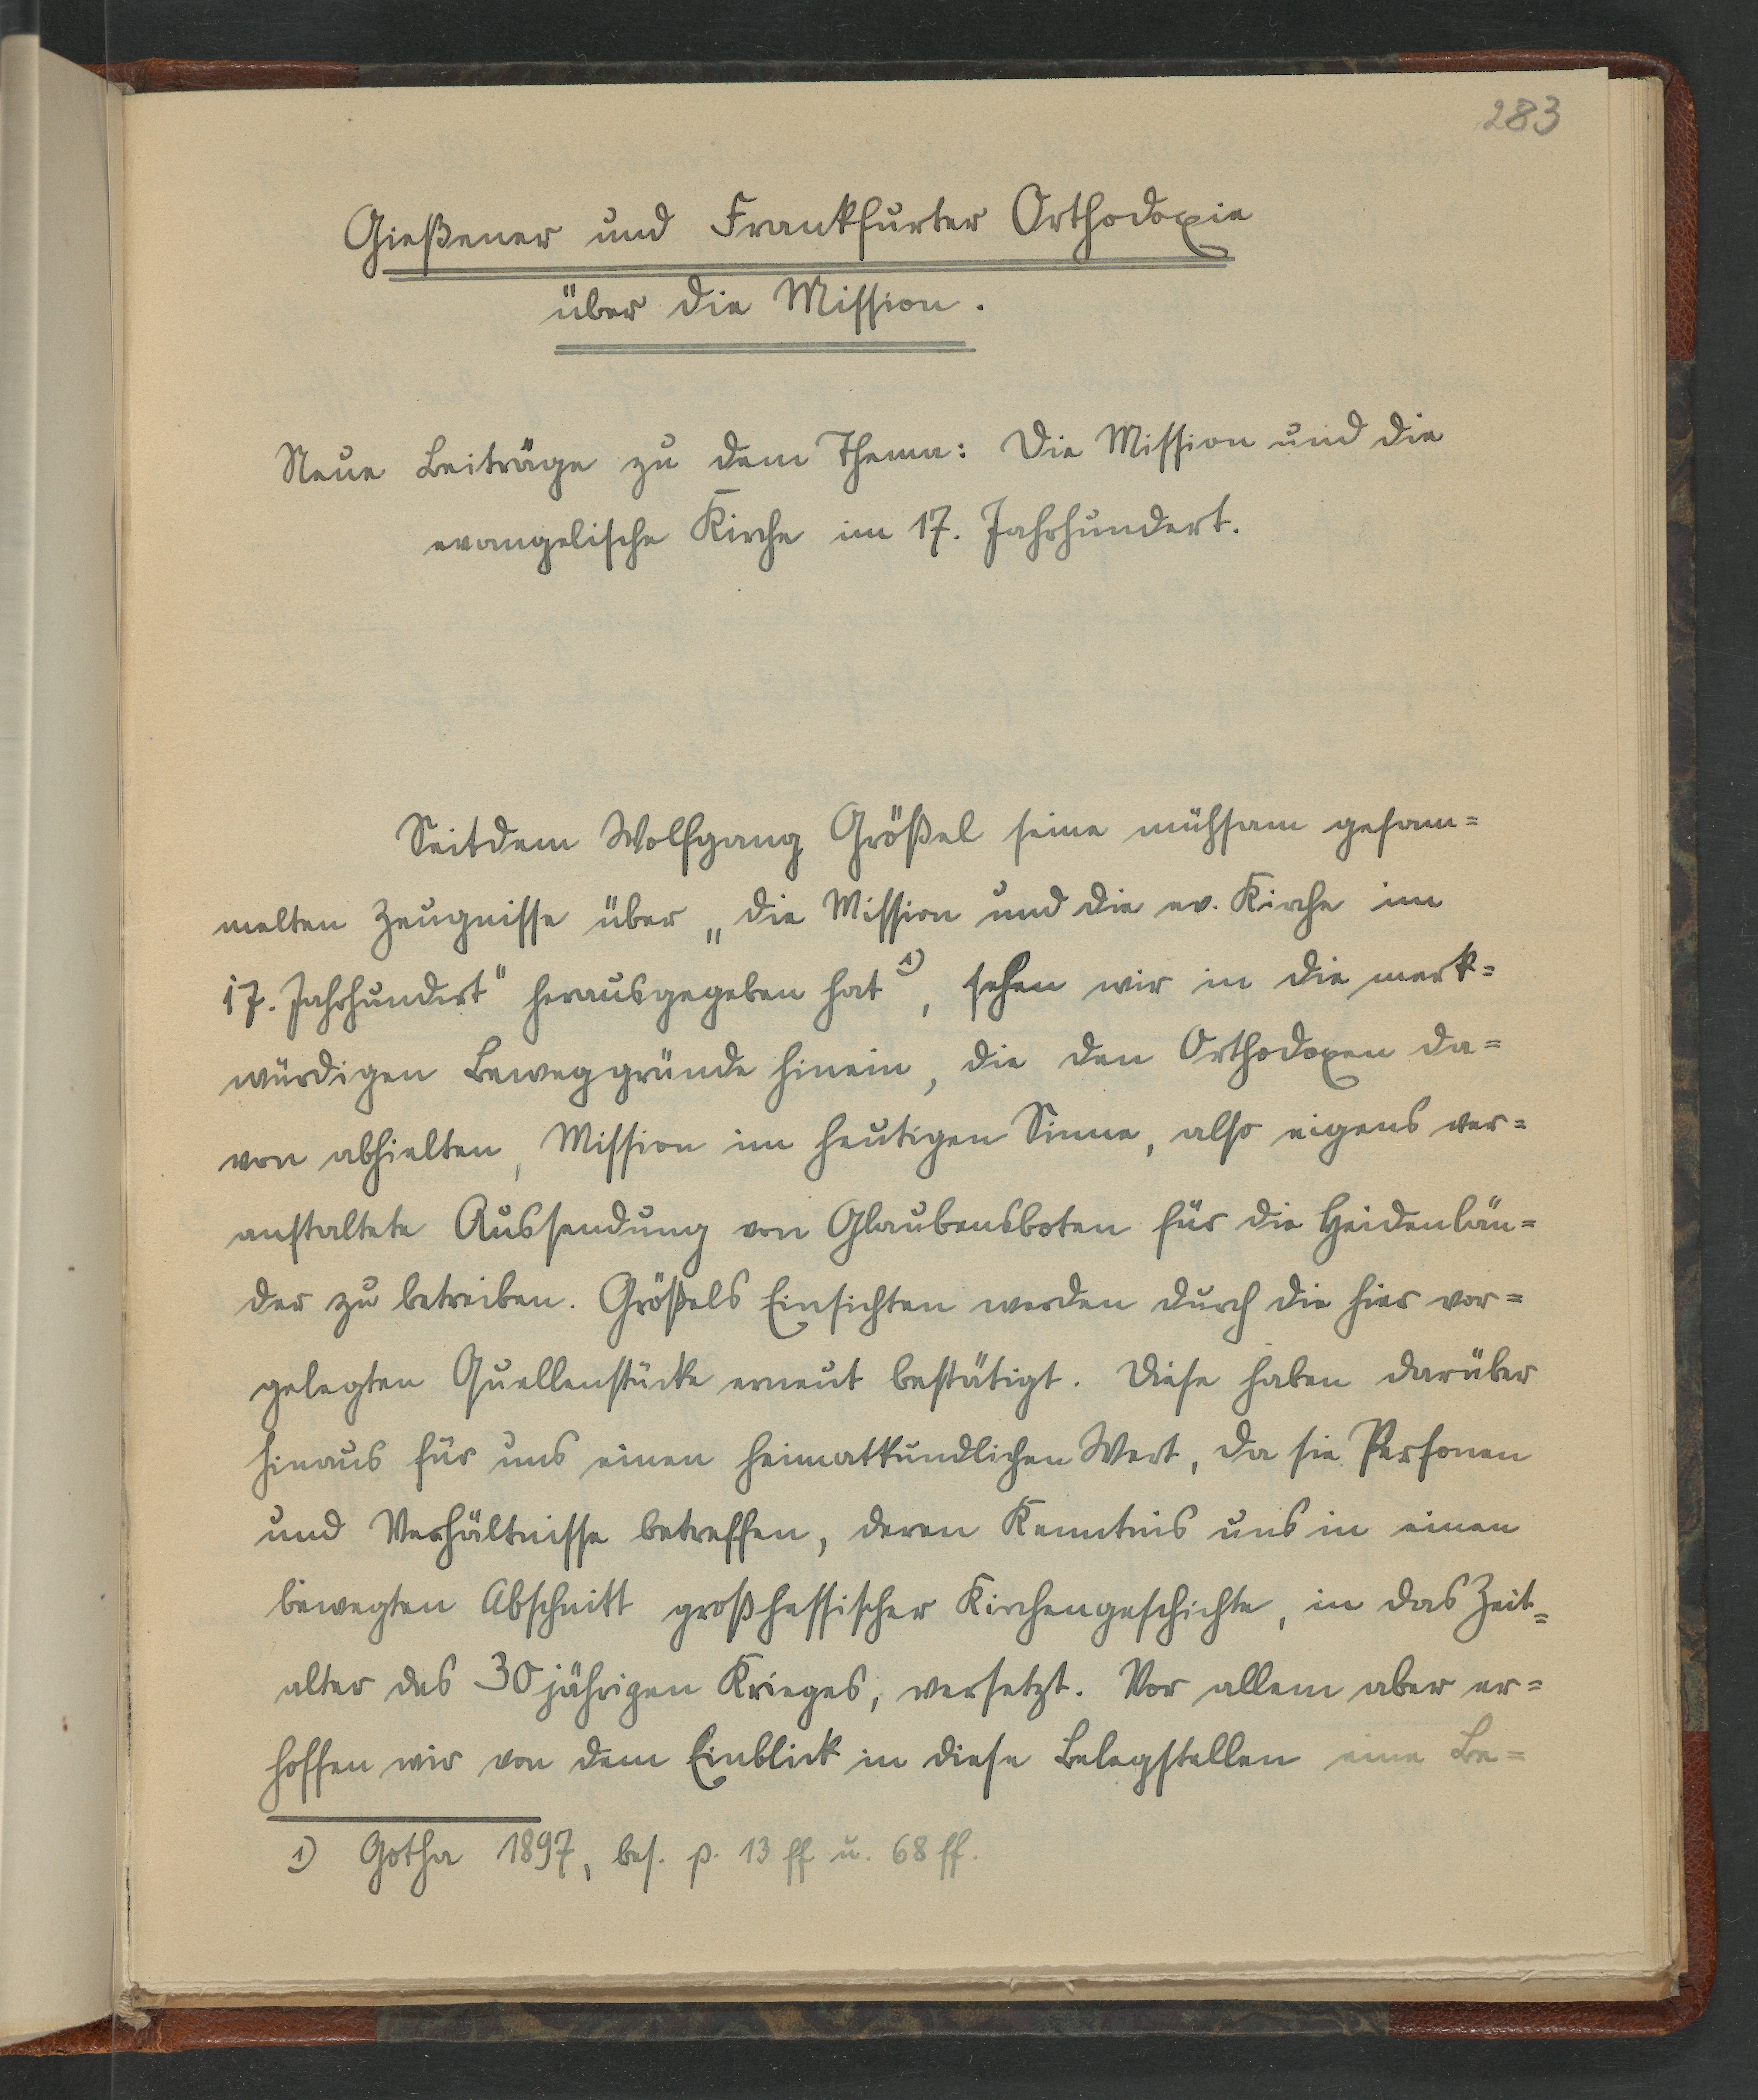 283
Gießener und Frankfurter Orthodoxie
über die Mission.
Neue Beiträge zu dem Thema: Die Mission und die
evangelische Kirche im 17. Jahrhundert.
Seitdem Wolfgang Größel seine mühsam gesam=
melten Zeugnisse über „die Mission und die ev. Kirche im
17. Jahrhundert" herausgegeben hat 1), sehen wir in die merk=
würdigen Beweggründe hinein, die den Orthodoxen da=
von abhielten, Mission im heutigen Sinne, also eigens ver=
anstaltete Aussendung von Glaubensboten für die Heidenlän=
der zu betreiben. Größels Einsichten werden durch die hier vor=
gelegten Quellenstücke erneut bestätigt. Diese haben darüber
hinaus für uns einen heimatkundlichen Wert, da sie Personen
und Verhältnisse betreffen, deren Kenntnis uns in einen
bewegten Abschnitt großhessischer Kirchengeschichte, in das Zeit=
alter des 30jährigen Krieges, versetzt. Vor allem aber er=
hoffen wir von dem Einblick in diese Belegstellen eine Be=
1) Gotha 1897, bes. p. 13 ff u. 68 ff.